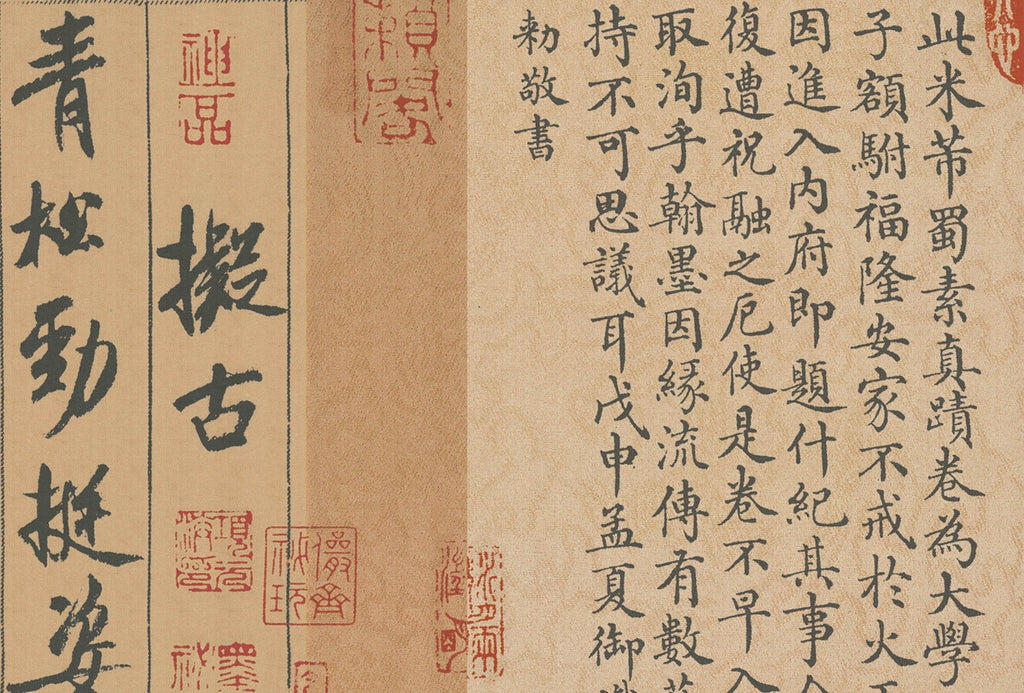 此米芾蜀素真蹟卷為大學
子額駙福隆安家不戒於火
因進入內府即題什紀其事
復遭祝融之厄使是卷不早入
取洵乎翰墨因緣流傳有數
持不可思議耳戊申孟夏御
勅敬書
儼齋
秘玩
擬古
青松勁挺姿